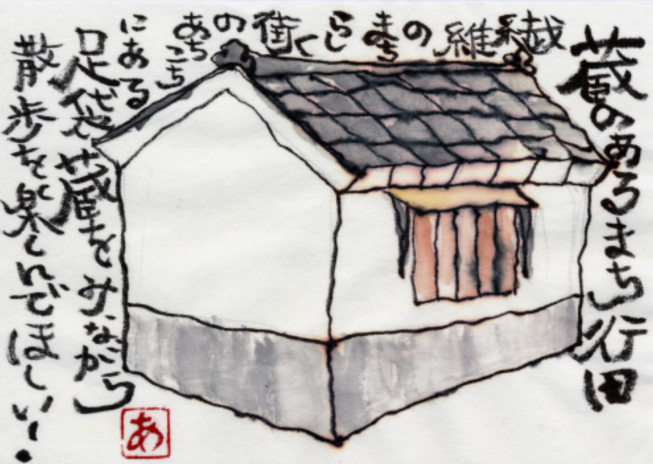 蔵のあるまち行田
繊維のまちらしく街のあちこち
にある
足袋蔵をみながら
散歩を楽しんでほしい!
あ